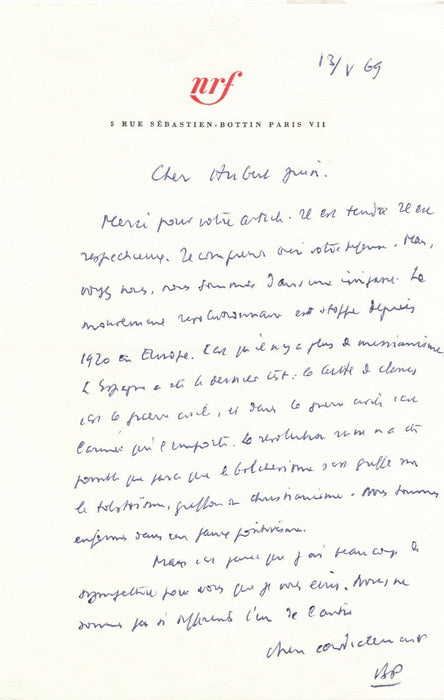 13/V 69
nrf
5 RUE SÉBASTIEN-BOTTIN PARIS VII
Cher Hubert Juin.
Merci pour votre article. Il est tendre il est
respectueux. Je comprends votre. Mais,
voyez vous, nous sommes dans une impasse. Le
mouvement révolutionnaire est stoppé depuis
1920 en Europe. C'est qu'il n'y a plus de messianisme
L'Espagne a été le dernier test: la lutte de classes
c'est la guerre civile, et dans la guerre civile c'est
l'armée qui l'emporte. La révolution russe n'a été
possible que parce que le bolchevisme s'est greffé sur
le tolstoïsme, greffon du christianisme. Nous sommes
enfermés dans un faux positivisme.
Mais c'est parce que j'ai beaucoup de
sympathie pour vous que je vous écris. Nous ne
sommes pas si différents l'un de l'autre
cordialement